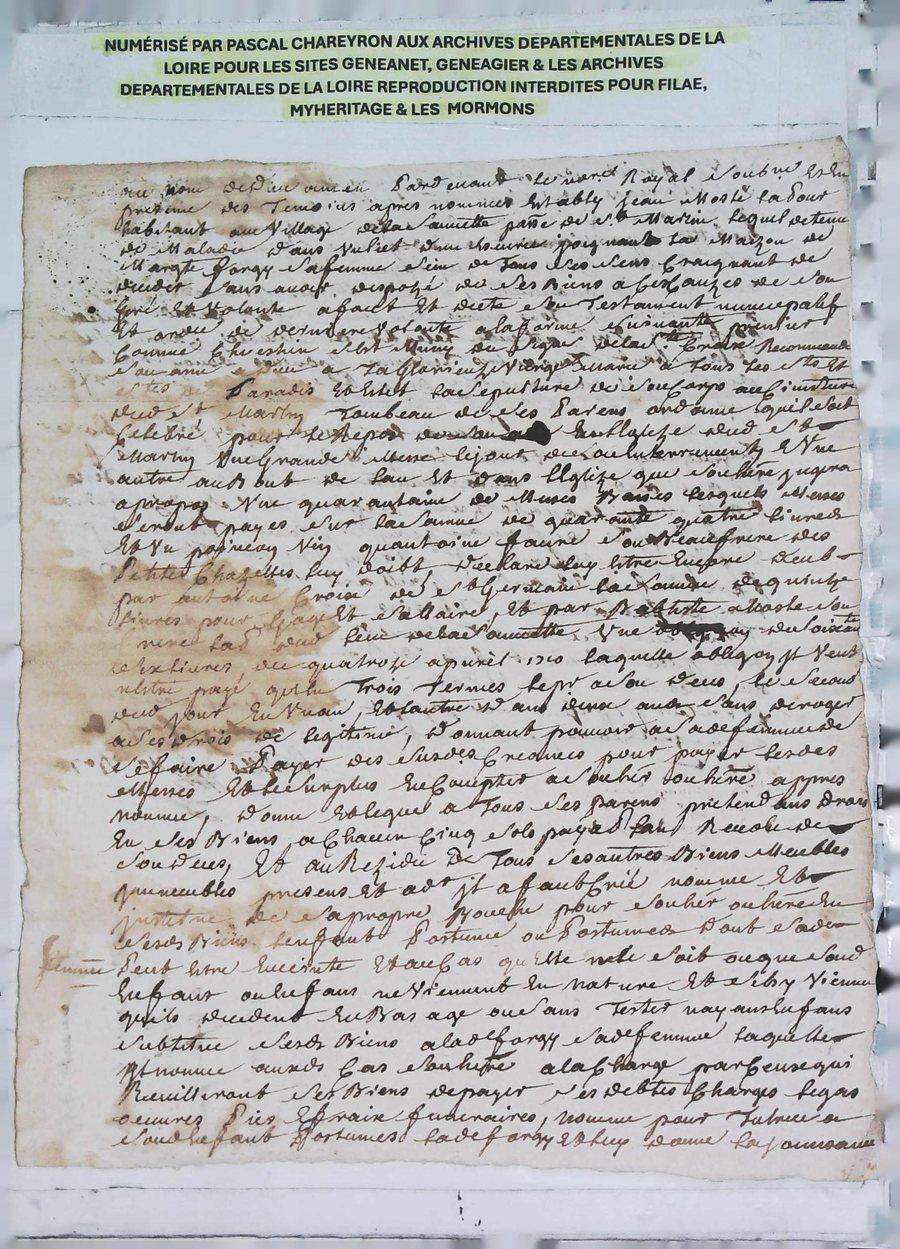 NUMÉRISÉ PAR PASCAL CHAREYRON AUX ARCHIVES DEPARTEMENTALES DE LA
LOIRE POUR LES SITES GENEANET, GENEAGIER & LES ARCHIVES
DEPARTEMENTALES DE LA LOIRE REPRODUCTION INTERDITES POUR FILAE,
MYHERITAGE & LES MORMONS
au nom de dieu amen Pardevant le noe Royal soubne et en
presence des Temoins apres nommes Estably Jean Mosle
habitant au Village de la parre de St Martin lequel detenu
de Maladie dans un lict joignant la Maizon de
Margte forgy sa femme sein de Tous ses sens Craignant de
deceder sans avoir dispozé de ses Biens a Ces Cauzes de son
gré Et Volonté a fait Et dicté son Testament nuncupatif
Et ordre de derniere Volonté a la forme suivante premier
Comme Chrestien s'est Muny du signe de la Ste Croix Recommandé
son ame a Dieu a la Glorieuze Vierge Marie a Tous les Sts Et
Stes Paradis Et Eslit la sepulture de son Corps au Cimetiere
dud St Martin Tombeau de ses Parens ordonne quil soit
Celebré pour le Repos de son en l'Esglize dud St
Martin Une Grande Messe le jour de son Enterrement Et Une
autre au Bout de l'an Et dans l'Eglize que son here jugera
apropos Une quarantaine de Messes Basses lesquels Messes
seront payes sur la somme de quarante quatre livres
Et Un poincon Vin quantoine faure son Beaufrere des
Petites Chazelles luy doibt declare luy estre Encore deub
par antoine Croizé de St Germain la somme de quinze
livres pour gage Et sallaire, Et par Mosle son
de la Une du soixante
Six livres du quatorze apvril 1710 laquelle obligaon Jl Veut
nestre payé quen Trois Termes le pr a son deces, le second
dud jour En Un an, Et lautre dans deux ans sans deroger
a ses droits de legitime, donnant pouvoir a sad femme de
se faire Payer des susdes Creances pour payer lesdes
Messes Et le surplus En Compter a son her ou here appres
nommé, donne Et legue a Tous ses parens pretendans droit
En ses Biens a Chacun Cinq sols payab lan Revolu de
son deces, Et au Rezidu de Tous ses autres Biens Meubles
jmmeubles presens Et adr jl a fait Crée nommé Et
jnstitue de sa propre Bouche pour son her ou here En
sesds Biens lenfant Postume ou Postumes dont sade
femme Peut estre Enceinte Et au Cas quelle ne le soit ou que led
Enfant ou Enfans ne Viennent En nature Et sily Vienne
quils decedent En Bas age ou sans Tester nayans Enfans
substitue sesds Biens a lade forgy sade femme laquelle
Jl nomme audt Cas son here a la Charge par Ceux qui
Recuilleront ses Biens de payer ses debtes Charges legas
oeuvres Pies Et fraix funeraires, nomme pour Tutrice a
sond Enfant Postumes lade forgy Et luy donne la Jouissance